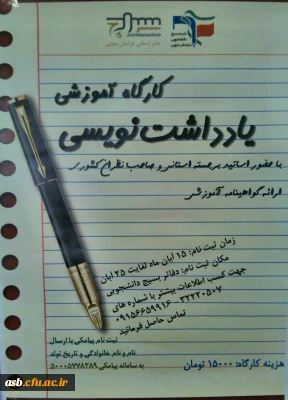 سراج
دفتر استانی خراسان جنوبی
کارگاه آموزشی
یادداشت نویسی
با حضور اساتید برجسته استانی و صاحب نظران کشوری
ارائه گواهینامه آموزشی
زمان ثبت نام: ۱۵ آبان ماه لغایت ۲۵ آبان
مکان ثبت نام: دفاتر بسیج دانشجویی
جهت کسب اطلاعات بیشتر با شماره های
۰۹۱۵۶۶۵۹۹۱۶ - ۳۲۲۲۰۵۰۷
تماس حاصل فرمائید
ثبت نام پیامکی با ارسال
نام و نام خانوادگی و تاریخ تولد
به سامانه پیامکی ۵۰۰۰۵۷۷۸۲۸۹
هزینه کارگاه: ۱۵۰۰۰ تومان
asb.cfu.ac.ir